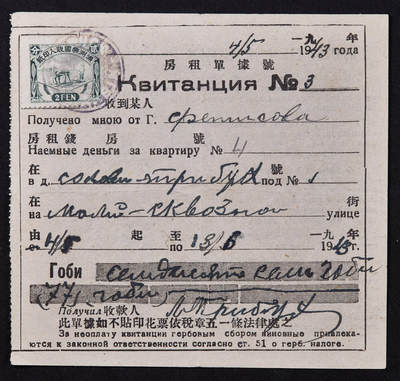 4/5 一九 年
1943 года
房租單據 號
Квитанция № 3
2 FEN
收到某人
Получено мною от Г.
房租錢 房 號
Наемные деньги за квартиру № 4
在
в д. под № 1
在 街
на улице
由 起 至 一九 年
от 4/5 по 13/6 1943
Гоби семьдесят семь гоби
(77) гоби
Получил 收款人
此單據如不貼印花票依稅章五一條法律處之
За неоплату квитанции гербовым сбором виновные привлека-
ются к законной ответственности согласно ст. 51 о герб. налоге.